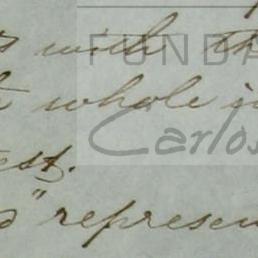 with th
whole i
est.
" represen
FUNDA
Carlos